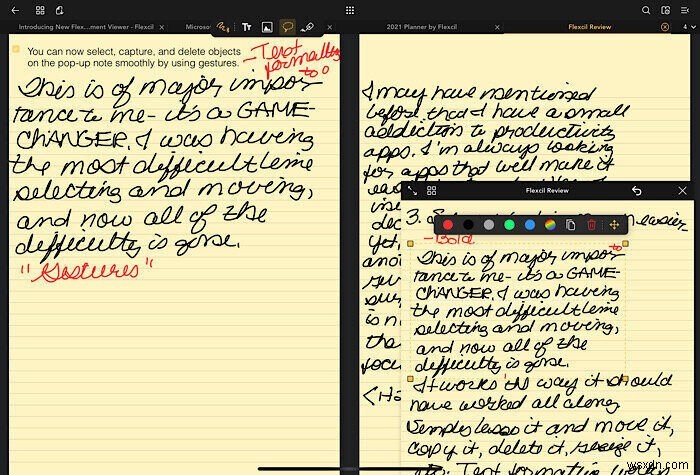 Introducing New Flex...ment Viewer - Flexcil
Microso
2021 Planner by Flexcil
Flexcil Review
4
You can now select, capture, and delete objects
on the pop-up note smoothly by using gestures.
- Text
formatting
too
This is of major impor
tance to me - it's a GAME-
CHANGER. I was having
the most difficult time
selecting and moving,
and now all of the
difficulty is gone.
"Gestures"
I may have mentioned
before that I have a small
addiction to productivity
apps. I'm always looking
for apps that will make it
Flexcil Review
3.
easier
- Bold
to
This is of major impor
tance to me - it's a GAME-
CHANGER. I was having
the most difficult time
selecting and moving,
and now all of the
difficulty is gone.
It works the way it should
have worked all along
Simply lasso it and move it,
copy it, delete it, resize it,
etc. Text formatting works
wsxdn.com